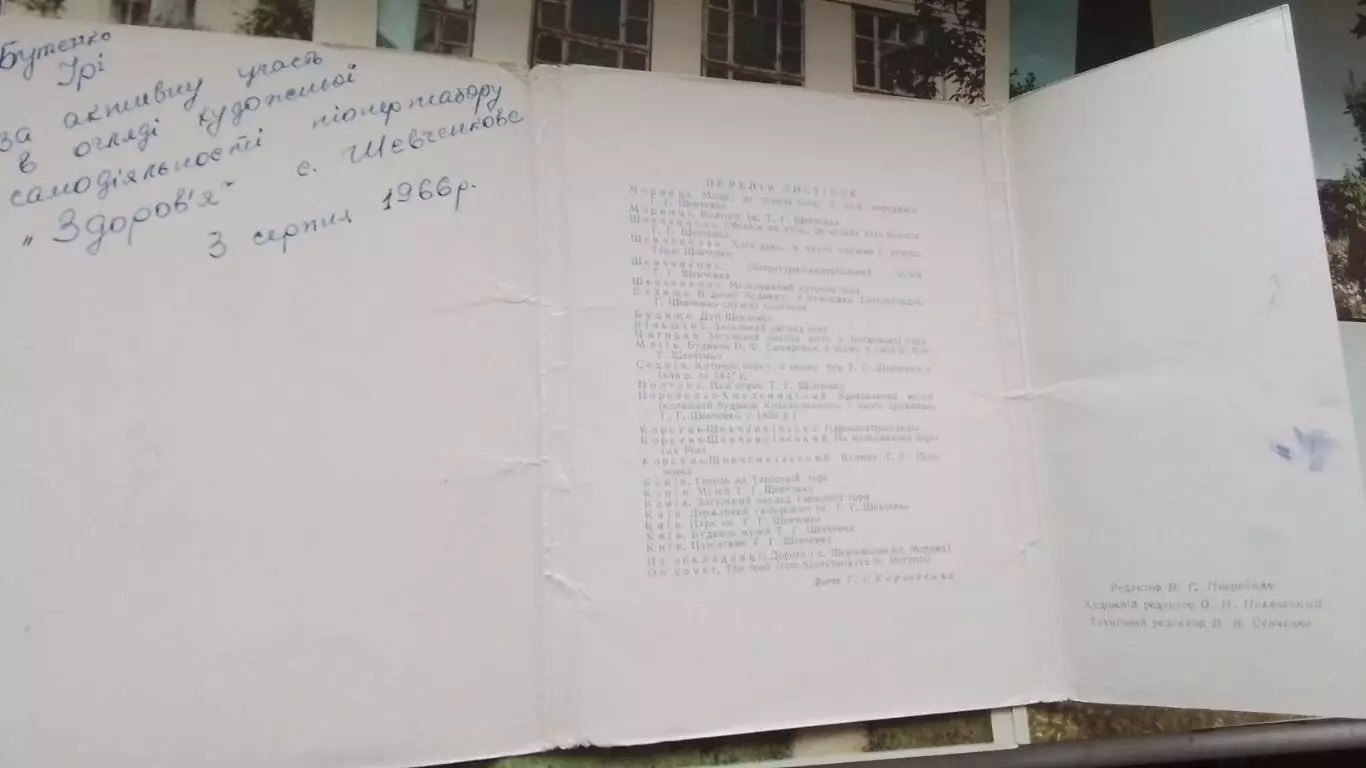 Бутенко
Ірі
за активну участь
в огляді художньої
самодіяльності піонертабору
„Здоров'я" с. Шевченкове
3 серпня 1966р.
ПЕРЕЛІК ЛИСТІВОК
Моринці.
Т. Г. Шевченко
Моринці. Т. Г. Шевченка
Шевченкове.
Т. Г. Шевченка
Шевченкове. Хата дяка, в
Тарас Шевченко
Шевченкове. Літературно-меморіальний музей
Т. Г. Шевченка
Шевченкове. Мальовничий куточок села
Будище. В цьому будинку, в поміщика Енгельгардта,
Т. Г. Шевченко служив козачком
Будище. Дуб Шевченка
Вільшана. Загальний вигляд села
Чигирин. Загальний вигляд міста з Богданової гори
Мліїв. Будинок П. Ф. Симиренка, в якому в 1859 р. був
Т. Г. Шевченко
Седнів. Куточок парку, в якому був Т. Г. Шевченко в
1846 р. та 1847 р.
Полтава. Пам'ятник Т. Г. Шевченку
Переяслав-Хмельницький. Краєзнавчий музей
(колишній будинок Козачковського, в якого проживав
Т. Г. Шевченко в 1859 р.)
Корсунь-Шевченківський. Гідроелектростанція
Корсунь-Шевченківський. На мальовничих бере-
гах Росі
Корсунь-Шевченківський. Т. Г. Шев-
ченка
Канів. Готель на Тарасовій горі
Канів. Музей Т. Г. Шевченка
Канів. Загальний вигляд Тарасової гори
Київ. Державний університет ім. Т. Г. Шевченка
Київ. Парк ім. Т. Г. Шевченка
Київ. Будинок-музей Т. Г. Шевченка
Київ. Пам'ятник Т. Г. Шевченку
На обкладинці: Дорога з с. Шевченкове в с. Моринці
On cover: The road from Shevchenkove to Moryntsi
Фото Г. І.
Редактор В. Г.
Художній редактор О. П.
Технічний редактор В. В. Сенченко